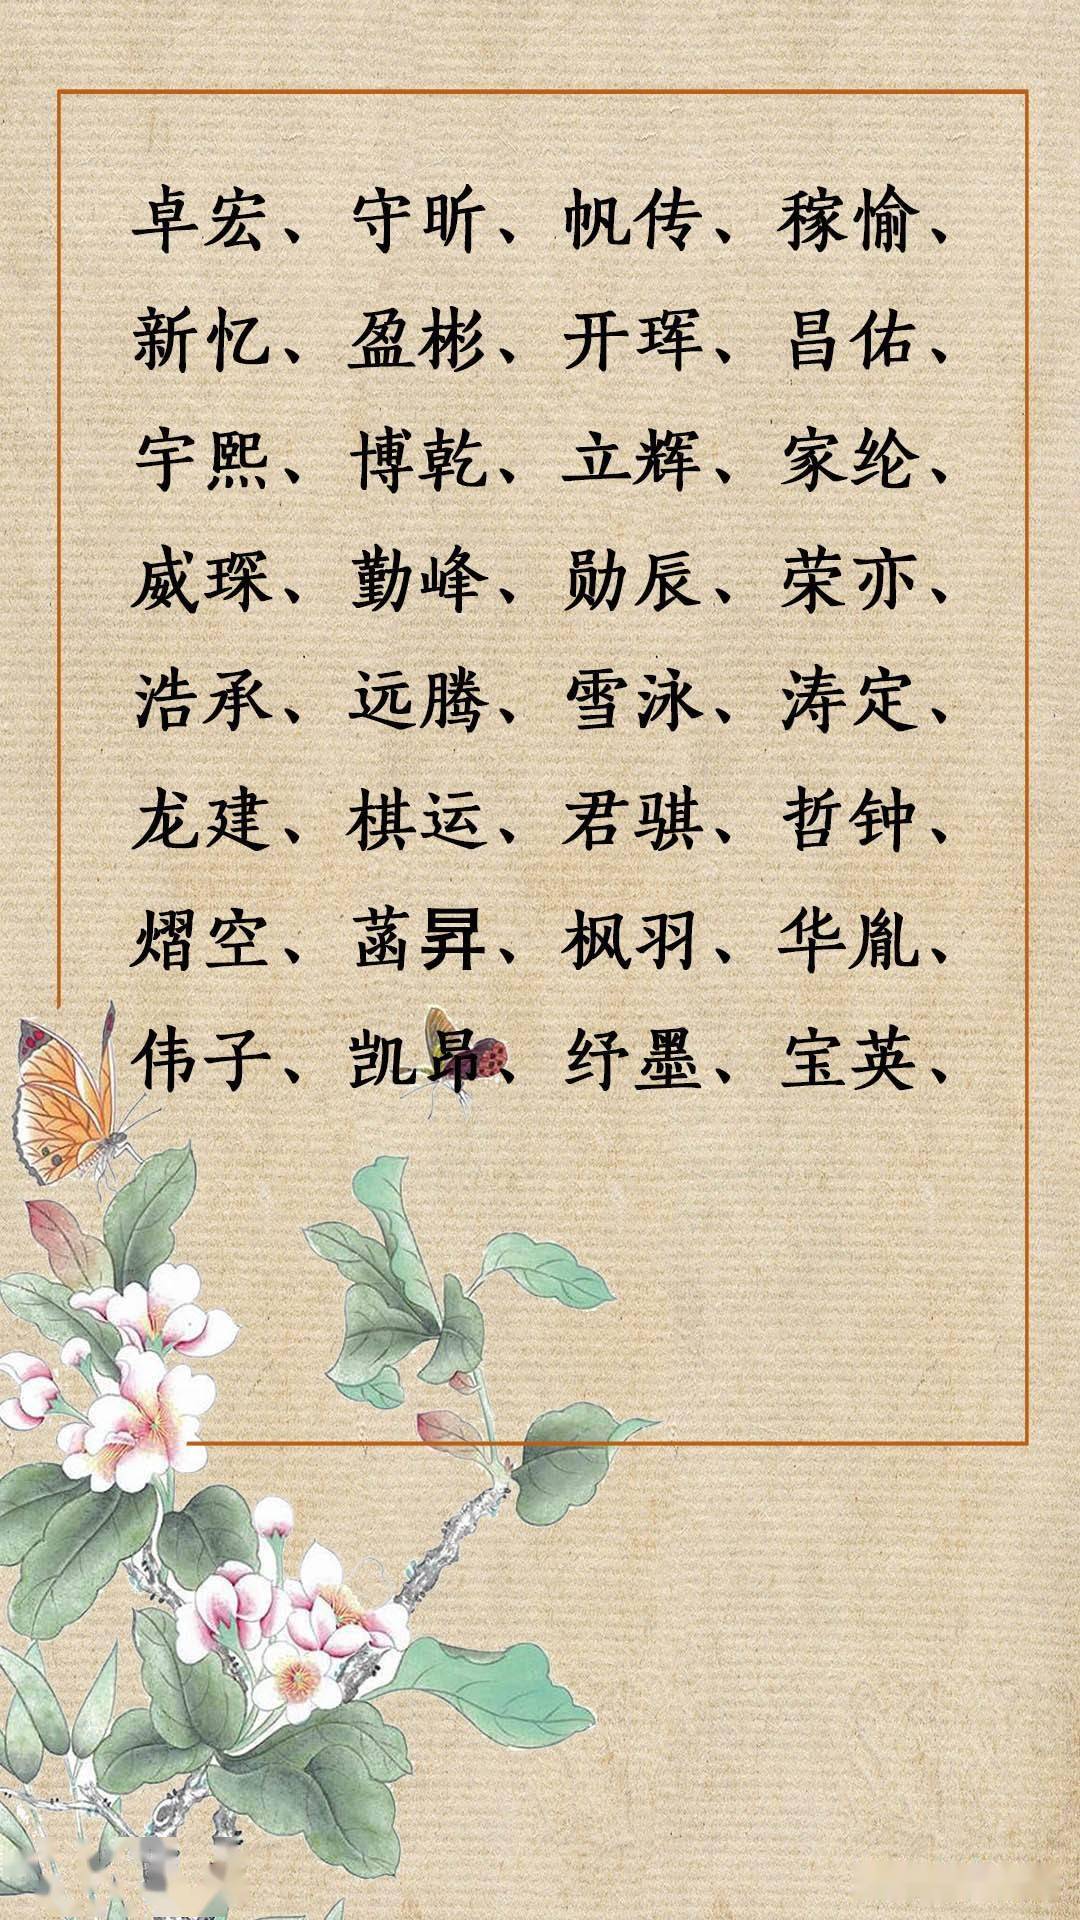 卓宏、守昕、帆传、稼愉、
新忆、盈彬、开珲、昌佑、
宇熙、博乾、立辉、家纶、
威琛、勤峰、勋辰、荣亦、
浩承、远腾、雪泳、涛定、
龙建、棋运、君骐、哲钟、
熠空、菡昇、枫羽、华胤、
伟子、凯昂、纾墨、宝英、